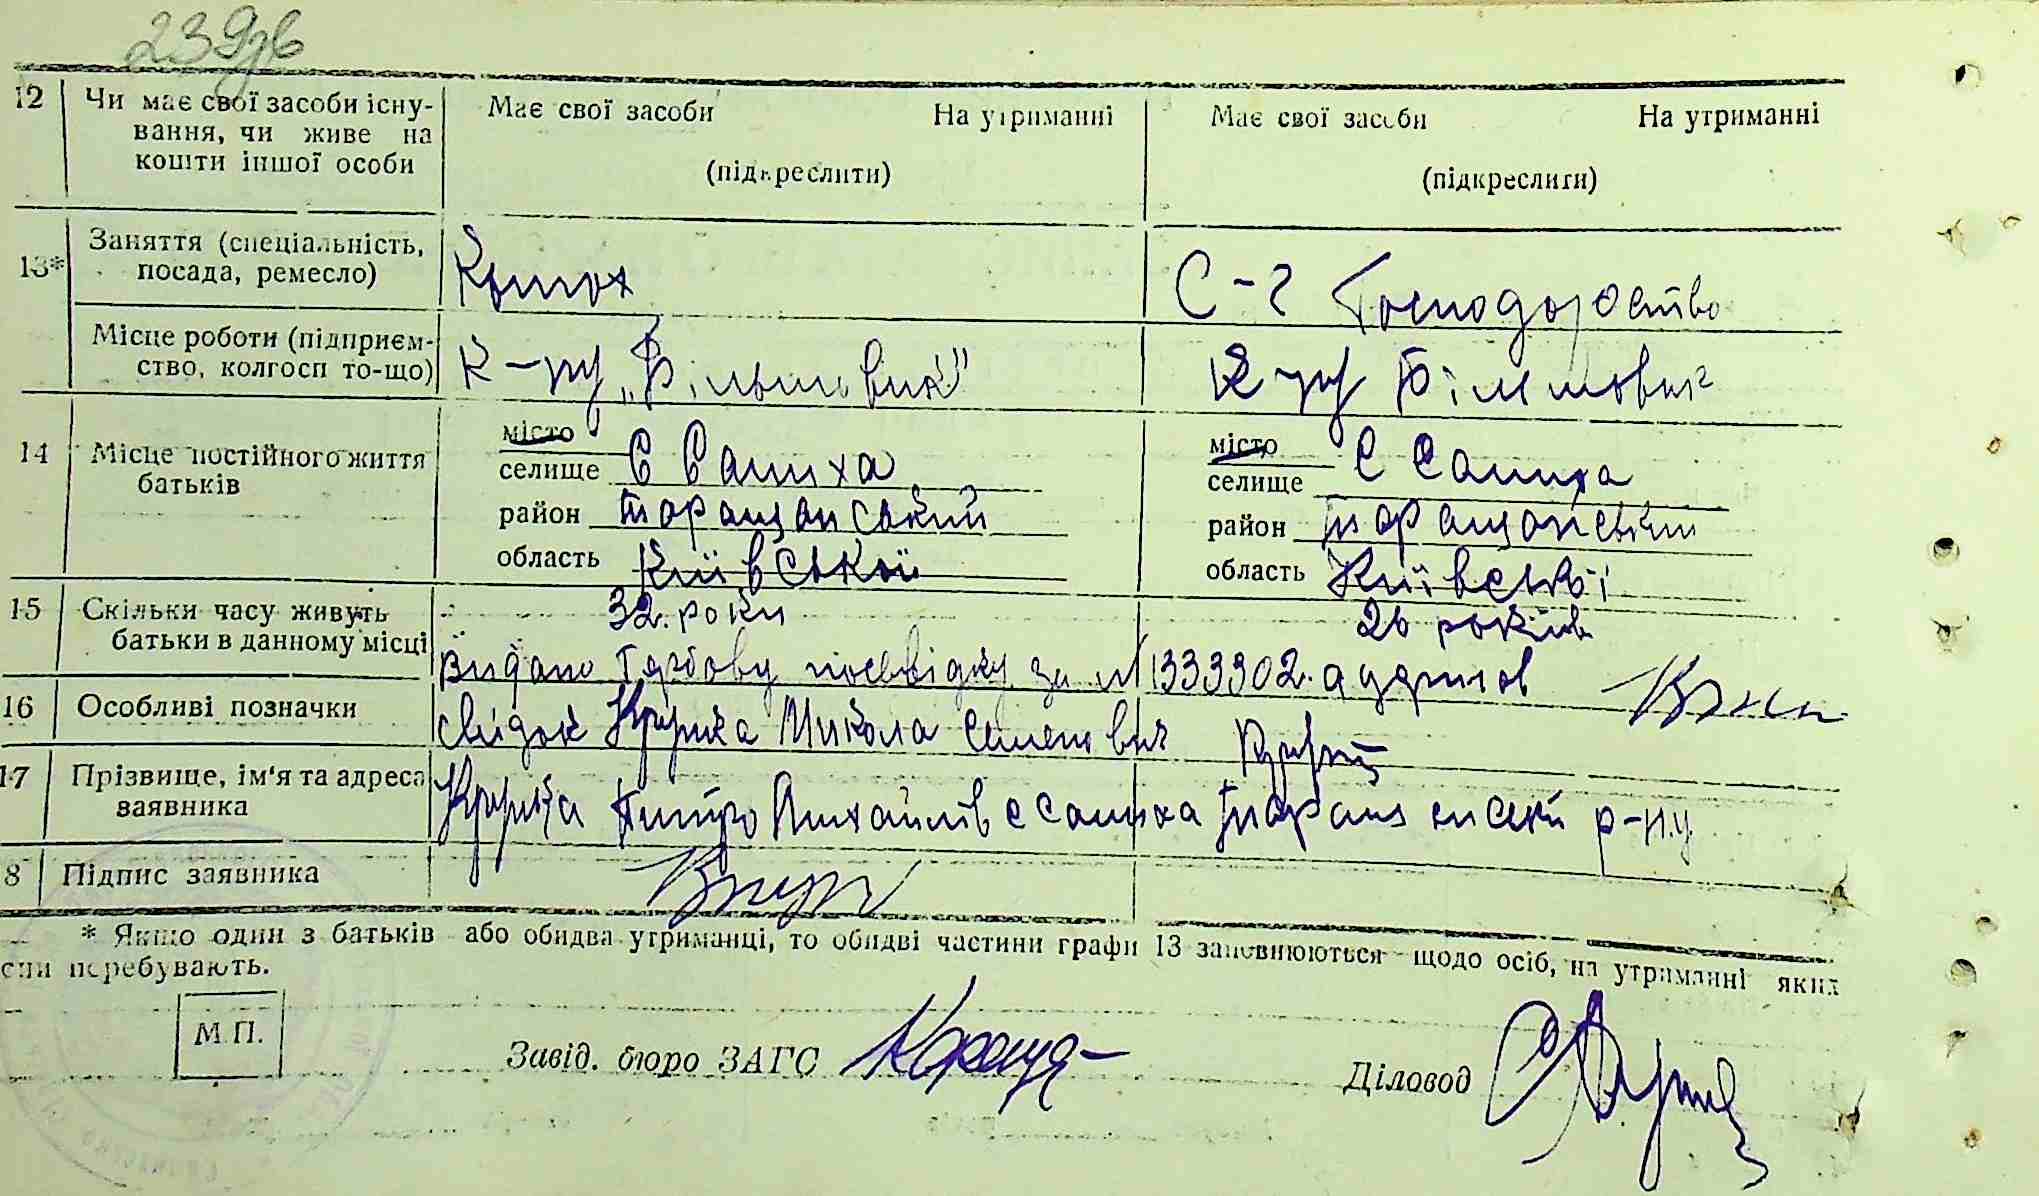 239зв
12 Чи має свої засоби існу- Має свої засоби На утриманні Має свої засоби На утриманні
вання, чи живе на
кошти іншої особи (підкреслити) (підкреслити)
13* Заняття (спеціальність,
посада, ремесло) Конюх С-г Господарство
Місце роботи (підприєм-
ство, колгосп то-що) К-пу „Більшовик" К-пу Більшовик
14 Місце постійного життя
батьків
місто місто
селище с Салиха селище с Салиха
район таращанський район таращанський
область Київської область Київської
15 Скільки часу живуть 32 роки 26 років
батьки в данному місці
видано Гербову посвідку за № 1333902
16 Особливі позначки свідок Микола Семенович
17 Прізвище, ім'я та адреса
заявника Михайлів с Салиха р-ну
8 Підпис заявника
* Якщо один з батьків або обидва утриманці, то обидві частини графи 13 заповнюються щодо осіб, на утриманні яких
они перебувають.
М.П.
Завід. бюро ЗАГС Діловод